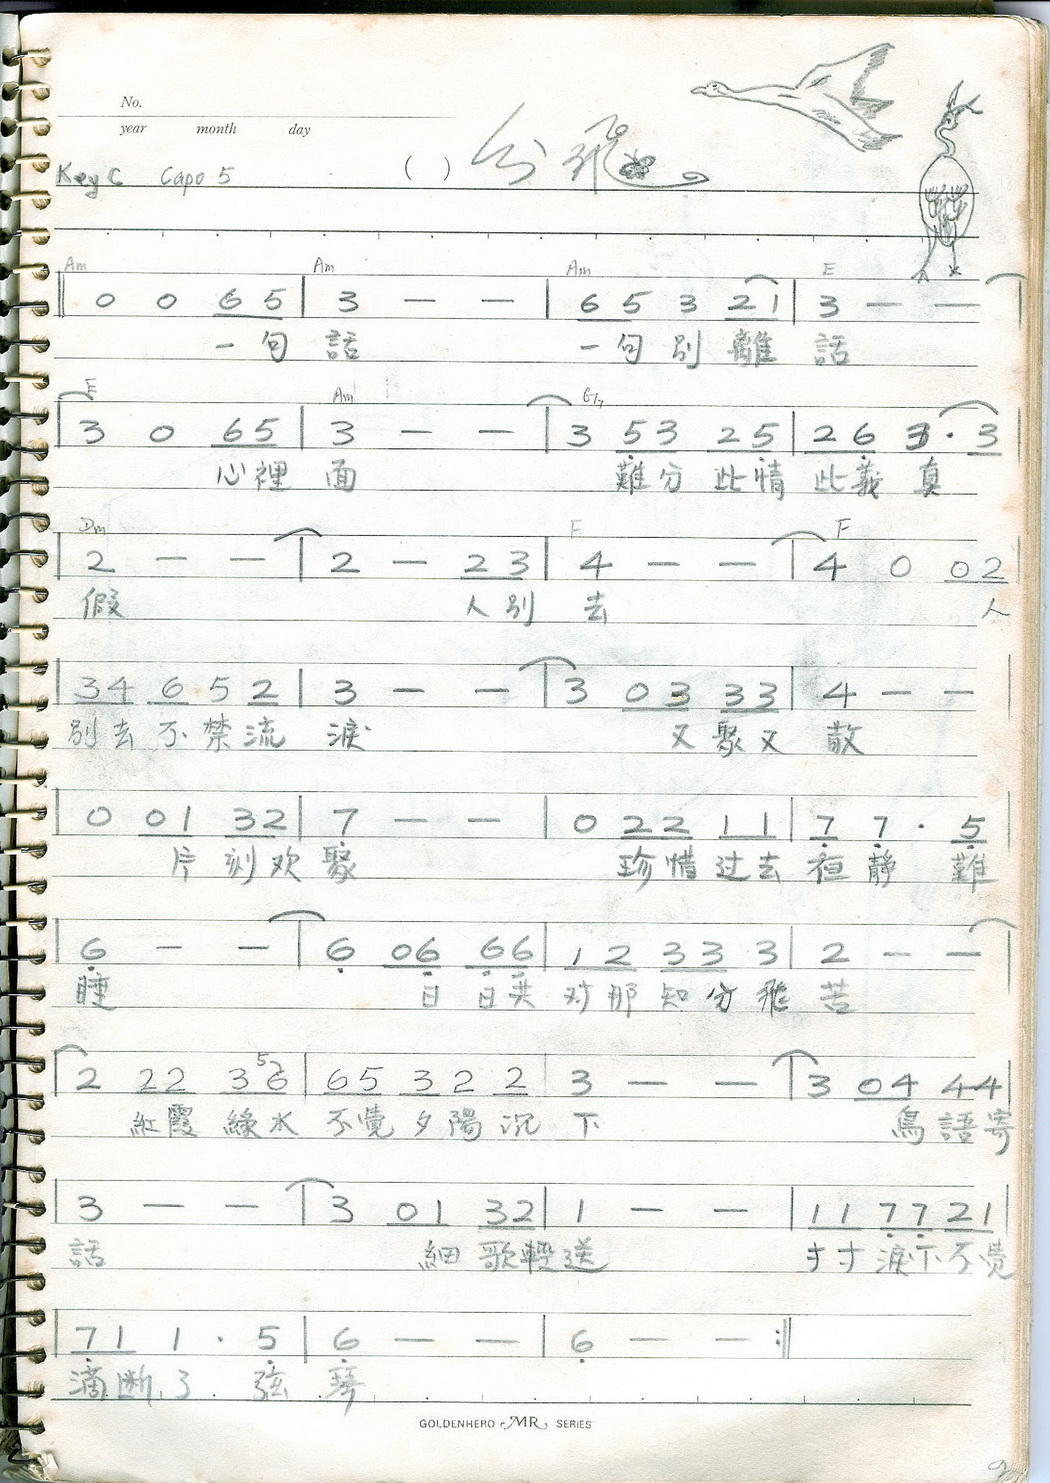 No.
year month day
Key C Capo 5 ( ) 分飛
Am Am Am E
0 0 6 5 | 3 — — | 6 5 3 2 1 | 3 — —
一句 話 一句別離 話
E Am G7
3 0 6 5 | 3 — — | 3 5 3 2 5 | 2 6 3 · 3
心裡 面 難分 此情 此義 真
Dm F F
2 — — | 2 — 2 3 | 4 — — | 4 0 0 2
假 人別 去 人
3 4 6 5 2 | 3 — — | 3 0 3 3 3 | 4 — —
別去不禁流 淚 又聚又 散
0 0 1 3 2 | 7 — — | 0 2 2 1 1 | 7 7 · 5
片刻欢 聚 珍惜过去 夜靜 難
6 — — | 6 0 6 6 6 | 1 2 3 3 3 | 2 — —
睡 日日共 对那知分飛 苦
2 2 2 3 5 6 | 6 5 3 2 2 | 3 — — | 3 0 4 4 4
紅霞 綠水 不覺夕陽沉 下 鳥語寄
3 — — | 3 0 1 3 2 | 1 — — | 1 1 7 7 2 1
話 細歌輕 送 寸寸淚下不覺
7 1 1 · 5 | 6 — — | 6 — — :||
滴断了 弦 琴
GOLDENHERO MR SERIES